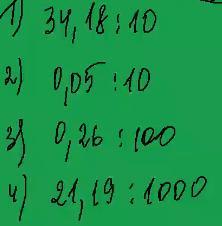 1) 34,18 : 10
2) 0,05 : 10
3) 0,26 : 100
4) 21,19 : 1000